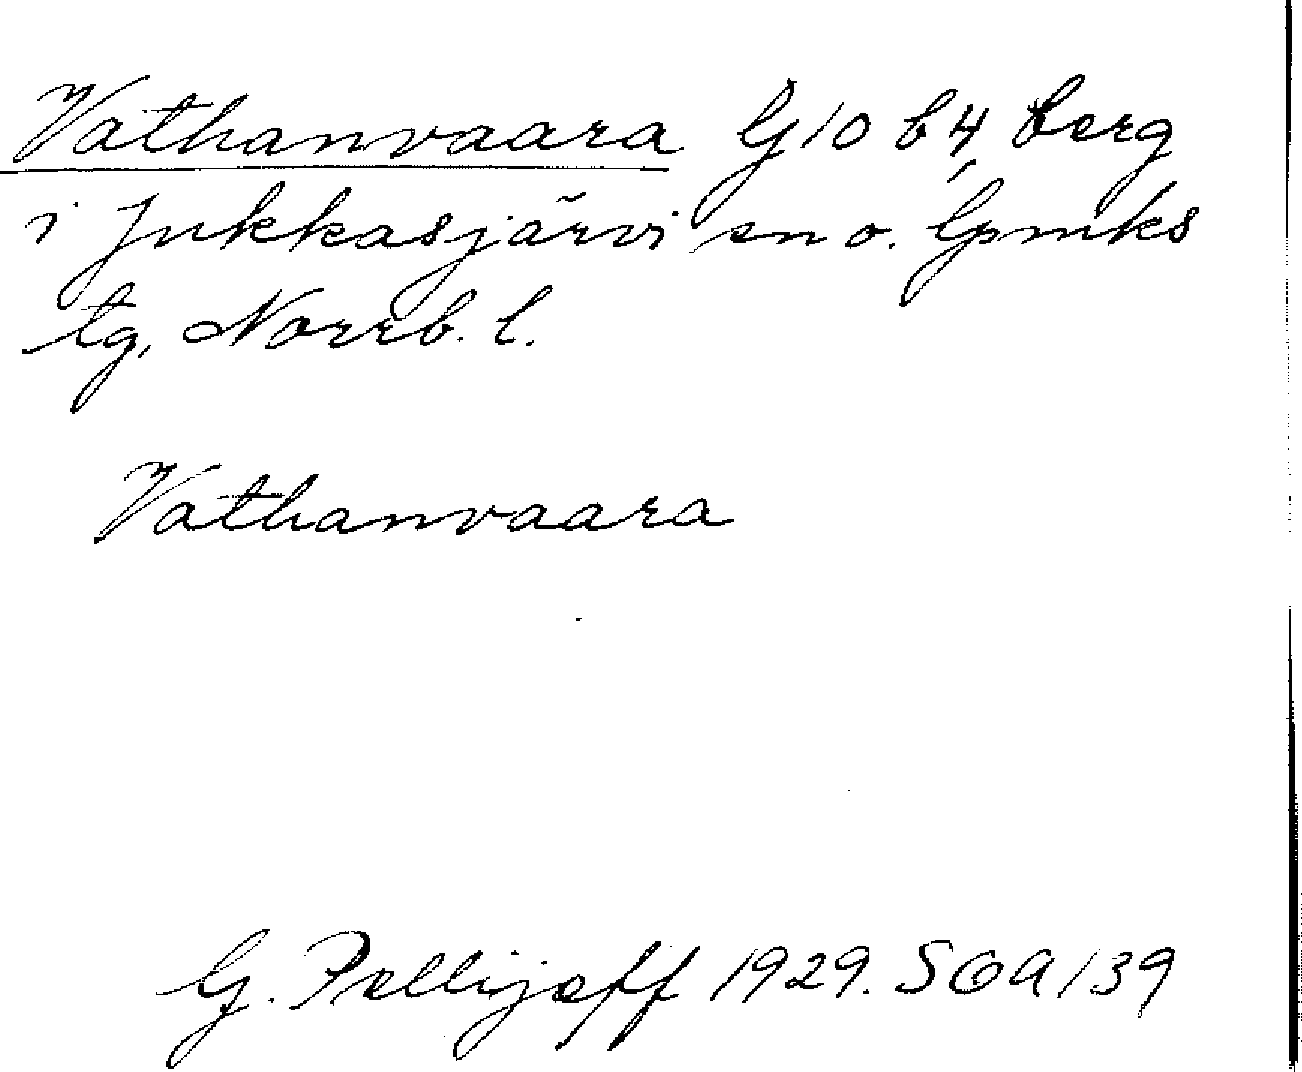 Vathanvaara G10 b4, berg
i Jukkasjärvi sn o. lpmks
tg, Norrb. l.
Vathanvaara
G. Pellijeff 1929. SOA 139